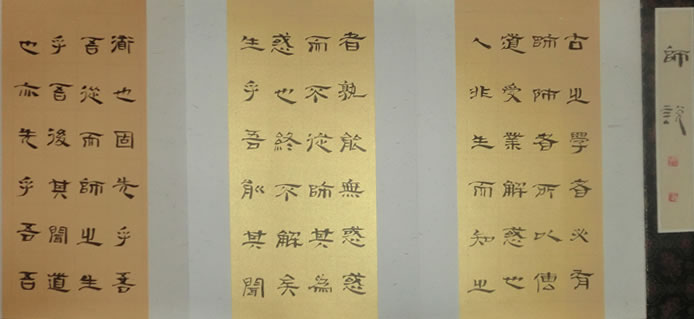 師說
古之學者必有
師師者所以傳
道受業解惑也
人非生而知之
者孰能無惑惑
而不從師其為
惑也終不解矣
生乎吾前其聞
道也固先乎吾
吾從而師之生
乎吾後其聞道
也亦先乎吾吾